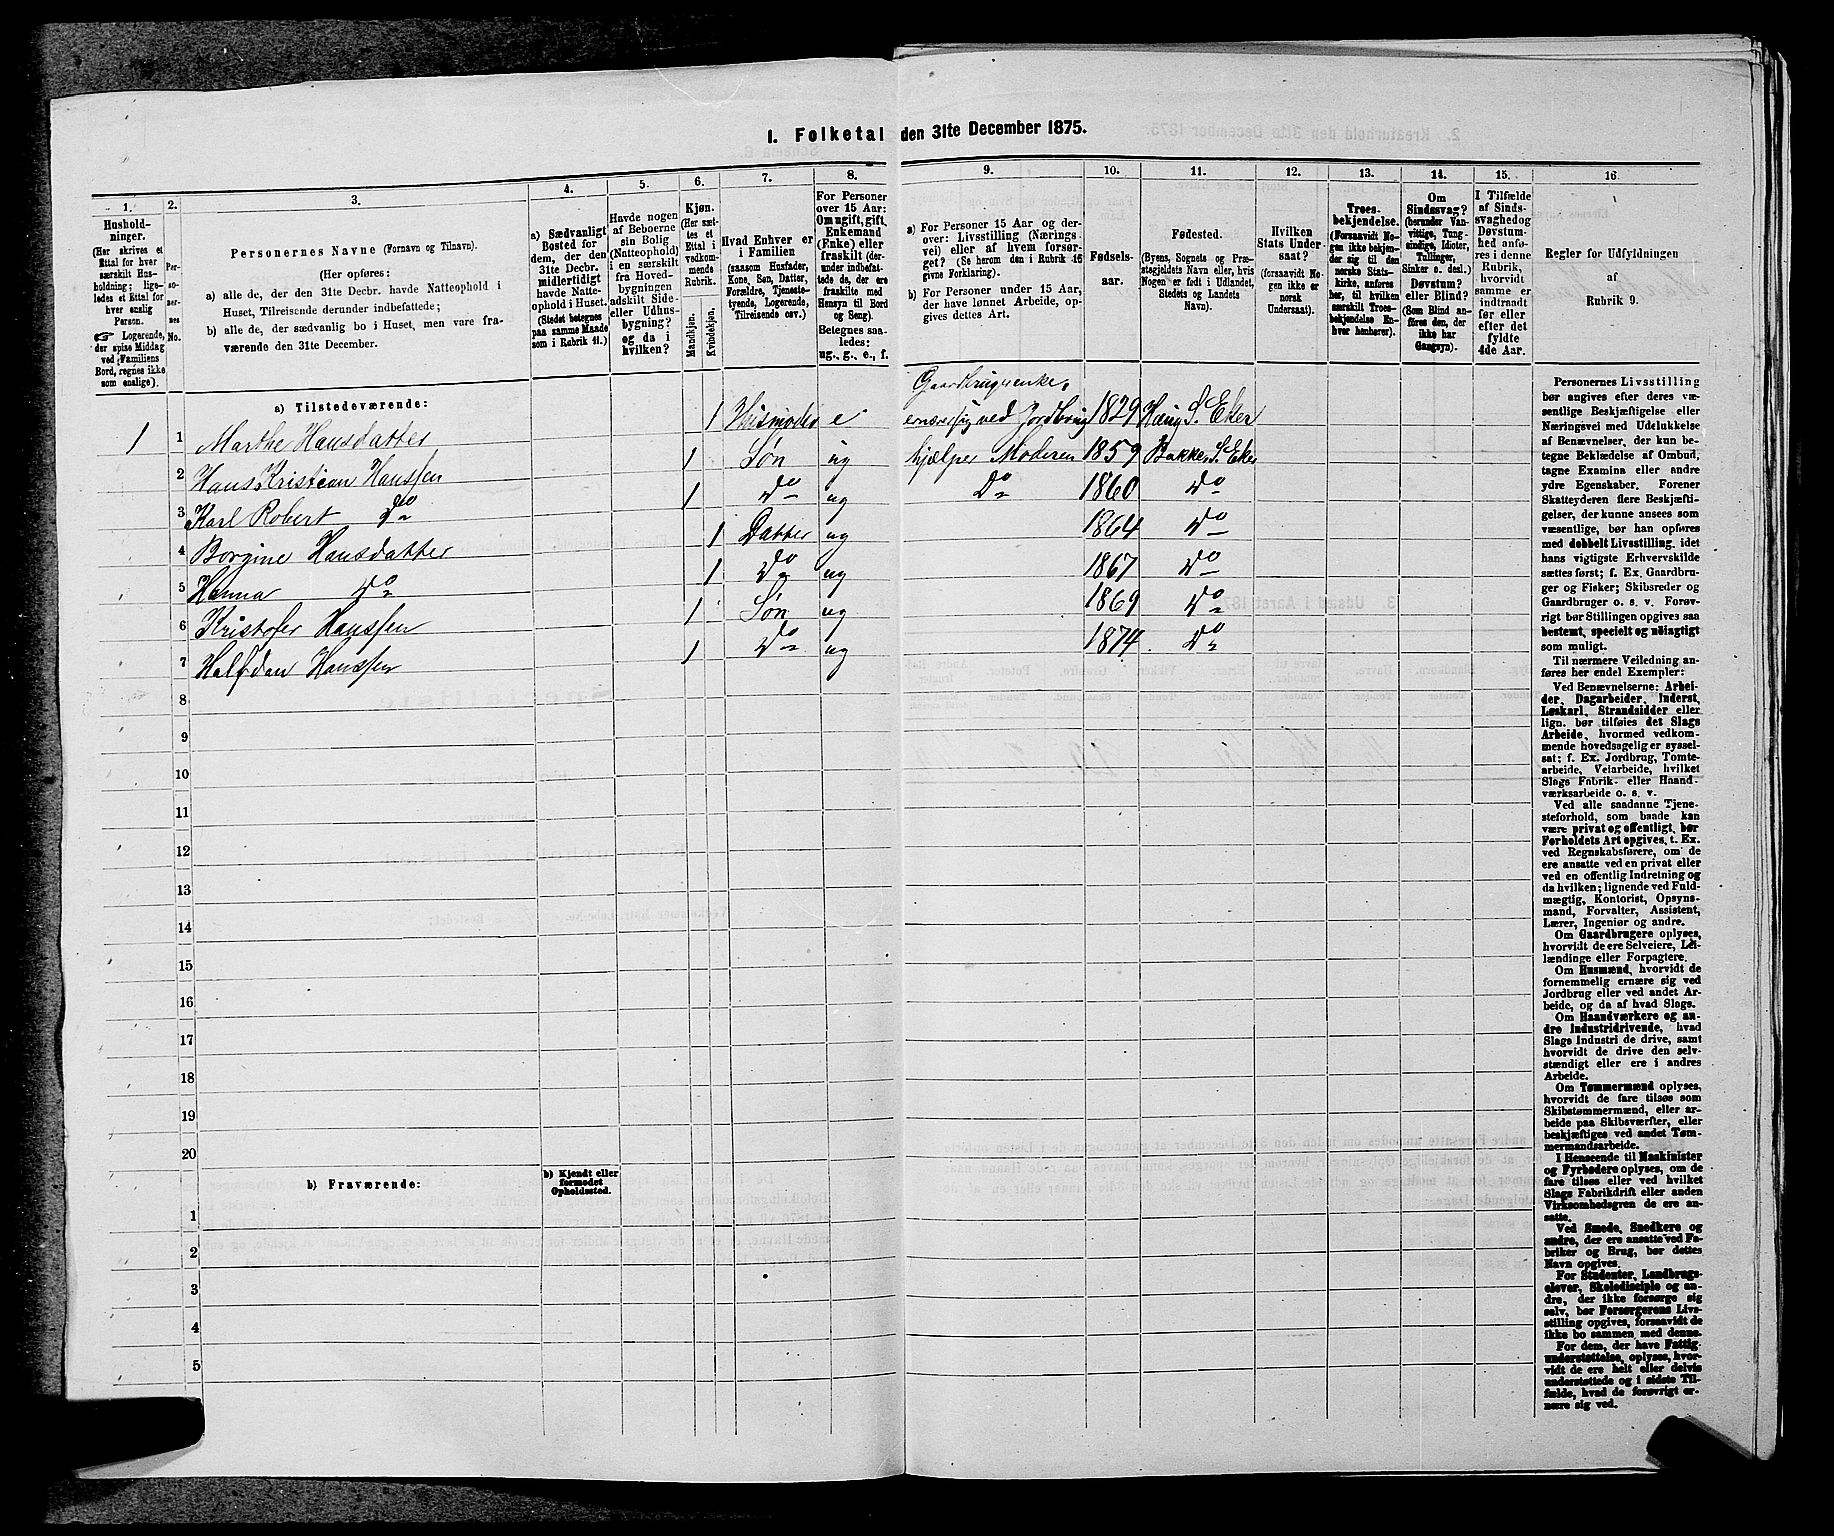 1. Folketal den 31te December 1875.
1.
Hushold-
ninger.
(Her skrives et
Ettal for hver
særskilt Hus-
holdning; lige-
ledes et Ettal for
hver enslig
Person.
☞ Logerende,
der spise Middag
ved Familiens
Bord, regnes ikke
som enslige).
2.
Per-
so-
ner-
nes
No.
3.
Personernes Navne (Fornavn og Tilnavn).
(Her opføres:
a) alle de, der den 31te Decbr. havde Natteophold i
Huset, Tilreisende derunder indbefattede;
b) alle de, der sædvanlig bo i Huset, men vare fra-
værende den 31te December.
4.
a) Sædvanligt
Bosted for
dem, der den
31te Decbr.
midlertidigt
havde Natte-
ophold i Huset.
(Stedet betegnes
paa samme Maade
som i Rubrik 11.)
5.
Havde nogen
af Beboerne
sin Bolig
(Natteophold)
i en særskilt
fra Hoved-
bygningen
adskilt Side-
eller Udhus-
bygning?
og da i
hvilken?
6.
Kjøn.
(Her sæt-
tes et
Ettal i
vedkom-
mende
Rubrik.
Mandkjøn.
Kvindekjøn.
7.
Hvad Enhver er
i Familien
(saasom Husfader,
Kone, Søn, Datter,
Forældre, Tjeneste-
tyende, Logerende,
Tilreisende osv.)
8.
For Personer
over 15 Aar:
Om ugift, gift,
Enkemand
(Enke) eller
fraskilt (der-
under indbefat-
tede de, der ere
fraskilte med
Hensyn til Bord
og Seng).
Betegnes saa-
ledes:
ug., g., e., f.
9.
a) For Personer 15 Aar og der-
over: Livsstilling (Nærings-
vei) eller af hvem forsør-
get? (Se herom den i Rubrik 16
givne Forklaring).
b) For Personer under 15 Aar,
der have lønnet Arbeide, op-
gives dettes Art.
10.
Fødsels-
aar.
11.
Fødested.
(Byens, Sognets og Præ-
stegjeldets Navn eller, hvis
Nogen er født i Udlandet,
Stedets og Landets
Navn).
12.
Hvilken
Stats Under-
saat?
(forsaavidt No-
gen ikke er
norsk
Undersaat).
13.
Troes-
bekjendelse.
(Forsaavidt No-
gen ikke bekjen-
der sig til den
norske Stats-
kirke, anføres
her, til hvilken
særskilt Troes-
bekjendelse En-
hver henhører).
14.
Om
Sindssvag?
(herunder Van-
vittige, Tung-
sindige, Idioter,
Tullinger,
Sinker o. desl.)
Døvstum?
eller Blind?
(Som Blind an-
føres den, der
ikke har
Gangsyn).
15.
I Tilfælde
af Sinds-
svaghed og
Døvstum-
hed anfø-
res i denne
Rubrik,
hvorvidt
samme er
indtraadt
før eller
efter det
fyldte
4de Aar.
16
Regler for Udfyldningen
af
Rubrik 9.
a) Tilstedeværende:
Gaardbrugerenke,
1 1 Marthe Hansdatter 1 Husmoder e ernærer sig ved Jordbrug 1829 Haug S. Eker
2 Hans Kristian Hanssen 1 Søn ug hjælper Moderen 1859 Bakke, S. Eker
3 Karl Robert Do 1 Do ug Do 1860 Do
4 Borgine Hansdatter 1 Datter ug 1864 Do
5 Hanna Do 1 Do ug 1867 Do
6 Kristofer Hanssen 1 Søn ug 1869 Do
7 Halfdan Hanssen 1 Do ug 1874 Do
8
9
10
11
12
13
14
15
16
17
18
19
20
b) Fraværende:
b) Kjendt eller
formodet
Opholdssted.
1
2
3
4
5
Personernes Livsstilling
bør angives efter deres væ-
sentlige Beskjæftigelse eller
Næringsvei med Udelukkelse
af Benævnelser, der kun be-
tegne Beklædelse af Ombud,
tagne Examina eller andre
ydre Egenskaber. Forener
Skatteyderen flere Beskjæfti-
gelser, der kunne ansees som
væsentlige, bør han opføres
med dobbelt Livsstilling, idet
hans vigtigste Erhvervskilde
sættes først; f. Ex. Gaardbru-
ger og Fisker; Skibsreder og
Gaardbruger o. s. v. Forøv-
rigt bør Stillingen opgives saa
bestemt, specielt og nøiagtigt
som muligt.
Til nærmere Veiledning an-
føres her endel Exempler:
Ved Benævnelserne: Arbei-
der, Dagarbeider, Inderst,
Løskarl, Strandsidder eller
lign. bør tilføies det Slags
Arbeide, hvormed vedkom-
mende hovedsagelig er syssel-
sat; f. Ex. Jordbrug, Tomte-
arbeide, Veiarbeide, hvilket
Slags Fabrik- eller Haand-
værksarbeide o. s. v.
Ved alle saadanne Tjene-
steforhold, som baade kan
være privat og offentligt, bør
Forholdets Art opgives, t. Ex.
ved Regnskabsførere, om de
ere ansatte ved en privat eller
ved en offentlig Indretning og
da hvilken; lignende ved Fuld-
mægtig, Kontorist, Opsyns-
mand, Forvalter, Assistent,
Lærer, Ingeniør og andre.
Om Gaardbrugere oplyses,
hvorvidt de ere Selveiere, Lei-
lændinge eller Forpagtere.
Om Husmænd, hvorvidt de
fornemmelig ernære sig ved
Jordbrug eller ved andet Ar-
beide, og da af hvad Slags.
Om Haandværkere og an-
dre Industridrivende, hvad
Slags Industri de drive, samt
hvorvidt de drive den selv-
stændigt eller ere i andres
Arbeide.
Om Tømmermænd oplyses,
hvorvidt de fare tilsøs som
Skibstømmermænd, eller ar-
beide paa Skibsværfter, eller
beskjæftiges ved andet Tøm-
mermandsarbeide.
I Henseende til Maskinister
og Fyrbødere oplyses, om de
fare tilsøs eller ved hvilket
Slags Fabrikdrift eller anden
Virksomhedsgren de ere an-
satte.
Ved Smede, Snedkere og
andre, der ere ansatte ved Fa-
briker og Brug, bør dettes
Navn opgives.
For Studenter, Landbrugs-
elever, Skoledisciple og an-
dre, der ikke forsørge sig
selv, bør Forsørgerens Livs-
stilling opgives, forsaavidt de
ikke bo sammen med denne.
For dem, der have Fattig-
understøttelse, oplyses, hvor-
vidt de ere helt eller delvis
understøttede og i sidste Til-
fælde, hvad de forøvrigt er-
nære sig ved.